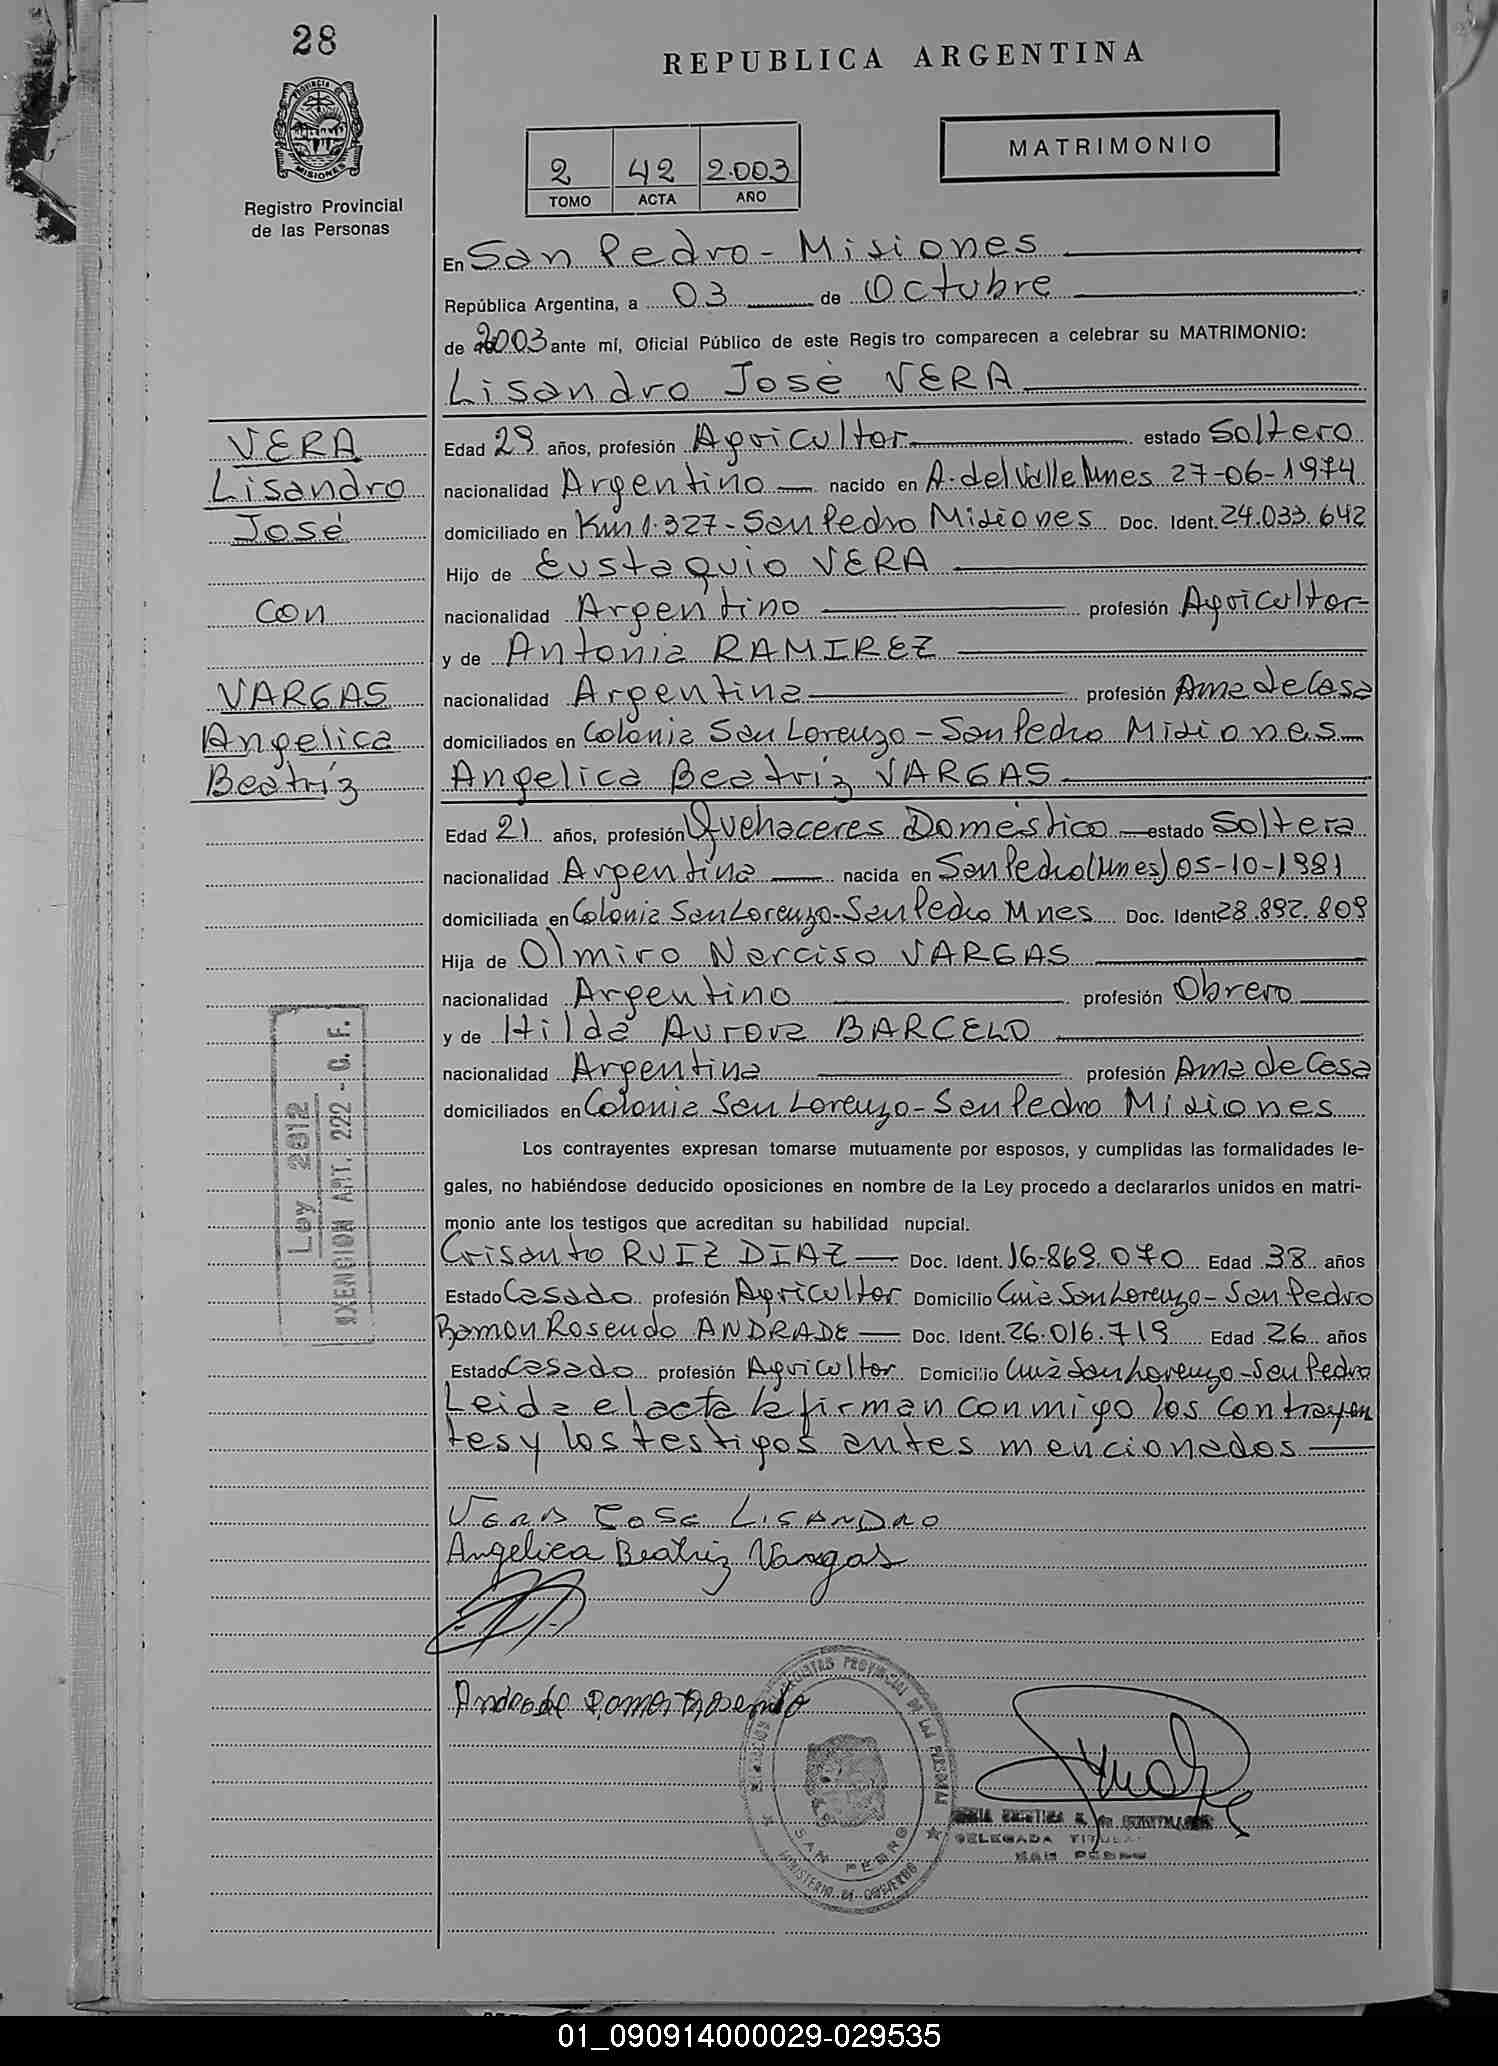 28
REPUBLICA ARGENTINA
Provincia de
MISIONES
Registro Provincial
de las Personas
2 42 2.003
TOMO ACTA AÑO
MATRIMONIO
En San Pedro - Misiones
República Argentina, a 03 de Octubre
de 2003 ante mí, Oficial Público de este Regis tro comparecen a celebrar su MATRIMONIO:
Lisandro José VERA
VERA
Lisandro
José
con
VARGAS
Angelica
Beatríz
Edad 29 años, profesión Agricultor estado Soltero
nacionalidad Argentino nacido en A. del Valle Mnes 27-06-1974
domiciliado en Km 1.327 - San Pedro Misiones Doc. Ident. 24.033.642
Hijo de Eustaquio VERA
nacionalidad Argentino profesión Agricultor
y de Antonia RAMIREZ
nacionalidad Argentina profesión Ama de Casa
domiciliados en Colonia San Lorenzo - San Pedro Misiones
Angelica Beatríz VARGAS
Edad 21 años, profesión Quehaceres Doméstico estado Soltera
nacionalidad Argentina nacida en San Pedro (Mnes) 05-10-1981
domiciliada en Colonia San Lorenzo - San Pedro Mnes Doc. Ident 28.892.809
Hija de Olmiro Narciso VARGAS
nacionalidad Argentino profesión Obrero
y de Hilda Aurora BARCELO
nacionalidad Argentina profesión Ama de Casa
domiciliados en Colonia San Lorenzo - San Pedro Misiones
Ley 2812
EXENCION ART. 222 - C. F.
Los contrayentes expresan tomarse mutuamente por esposos, y cumplidas las formalidades le-
gales, no habiéndose deducido oposiciones en nombre de la Ley procedo a declararlos unidos en matri-
monio ante los testigos que acreditan su habilidad nupcial.
Crisanto RUIZ DIAZ Doc. Ident. 16.869.070 Edad 38 años
Estado Casado profesión Agricultor Domicilio Cnia San Lorenzo - San Pedro
Ramon Rosendo ANDRADE Doc. Ident. 26.016.719 Edad 26 años
Estado Casado profesión Agricultor Domicilio Cnia San Lorenzo - San Pedro
Leida el acta la firman conmigo los contrayen
tes y los testigos antes mencionados
VERA JOSE LISANDRO
Angelica Beatriz Vargas
Andrade Ramon Rosendo
PROVINCIAL DE LAS PERSONAS
SAN PEDRO
MINISTERIO DE GOBIERNO
DELEGADA TITULAR
SAN PEDRO
01_090914000029-029535